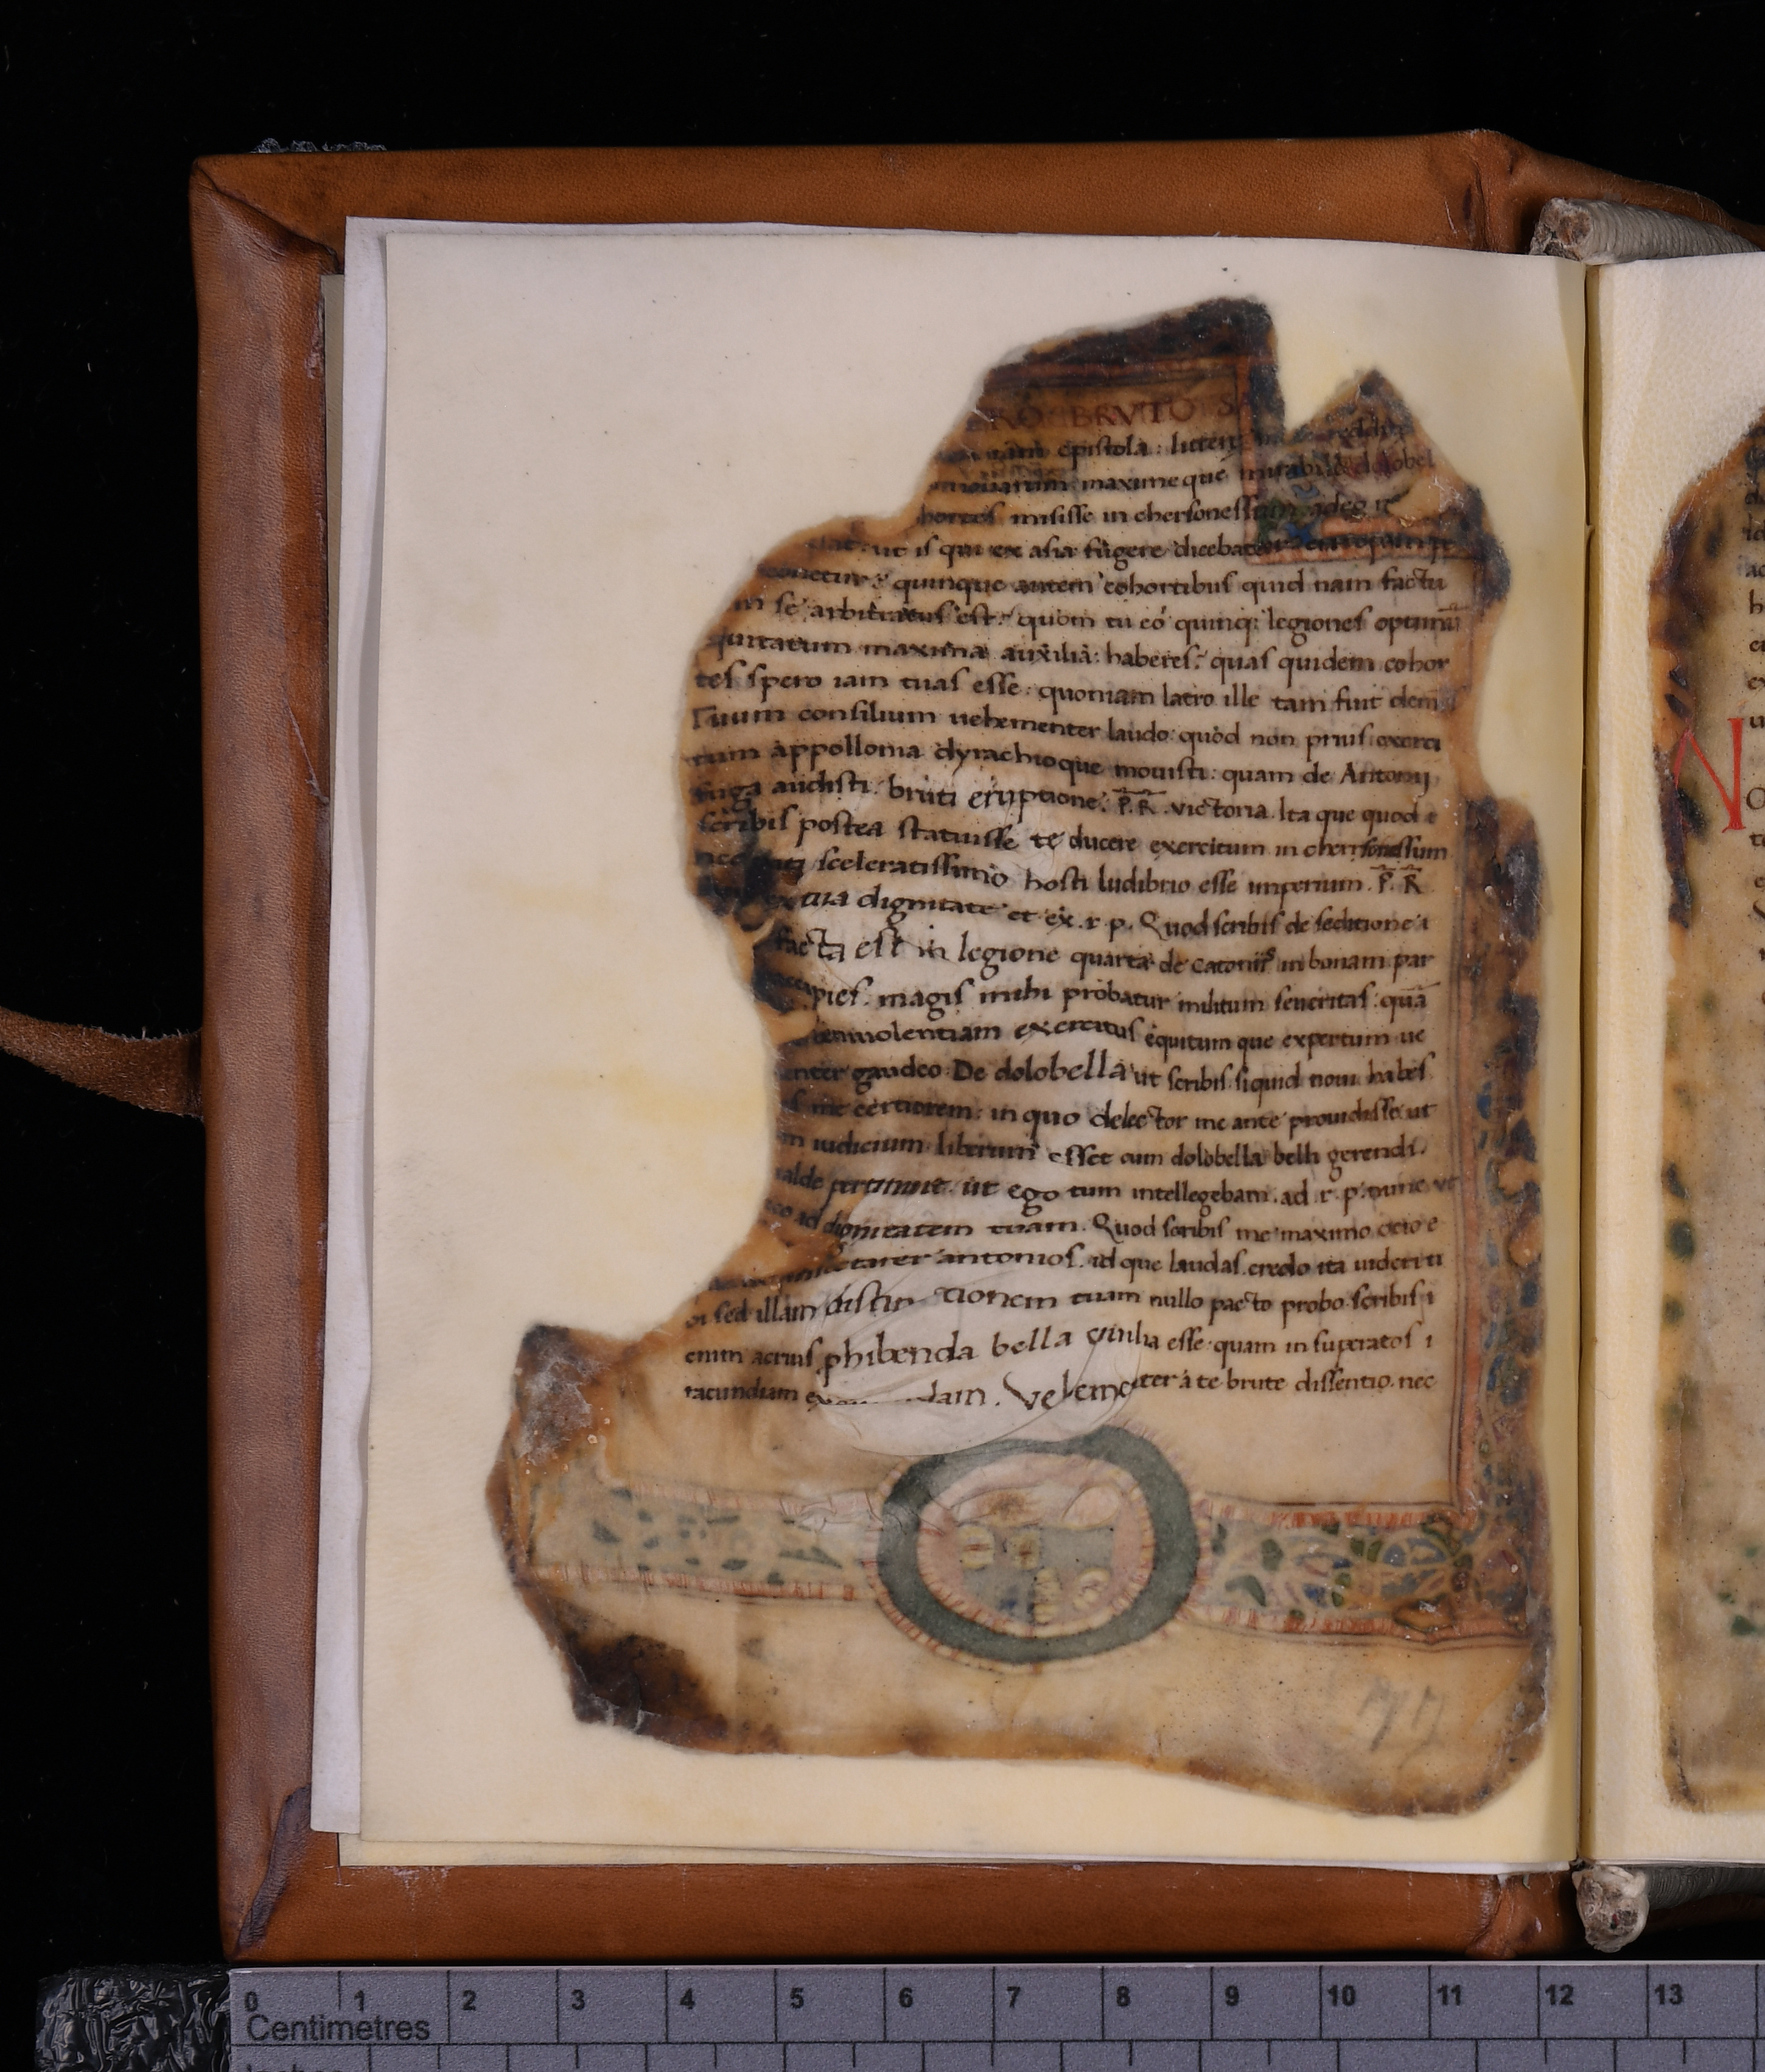 RO BRVTO S
epistola: litteris
maxime que mirabile dolobel
hortes misisse in chersonessum adeo
ut is qui ex asia fugere dicebatur europam
conetur? quinque autem cohortibus quid nam factu
m se arbitratus est? quom tu eo quinq: legiones optimū
quitatum maxima auxilia: haberes? quas quidem cohor
tes spero iam tuas esse: quoniam latro ille tam fuit demē
Tuum consilium uehementer laudo: quòd non prius exerci
tum àppollonia dyrachioque mouisti: quam de Antonij
fuga audisti. bruti eruptione. P̄. R̄. victoria. Ita que quod e
scribis postea statuisse te ducere exercitum in cherssonessum
sceleratissimo hosti ludibrio esse imperium. P̄. R̄
tua dignitate et ex .r.p. Quod scribis de seditione i
facta est in legione quarta de catoniis in bonam par
accipies. magis mihi probatur militum seueritas: quā
beniuolentiam exercitus equitum que expertum ue
enter gaudeo. De dolobella ut scribis siquid noui habes
s me certiorem: in quo delector me ante prouidisse ut
m iudicium liberum esset cum dolobella belli gerendi.
ualde pertinuit. ut ego tum intellegebam. ad .r.p. nunc. vt
co ad dignitatem tuam. Quod scribis me maximo ocio e
ctarer antonios. id que laudas. credo ita uideri ti
bi sed illam distinctionem tuam nullo pacto probo. scribis i
enim acrius phibenda bella ciuilia esse: quam in superatos i
racundiam dam. Vehementer à te brute dissentio. nec
0 1 2 3 4 5 6 7 8 9 10 11 12 13
Centimetres